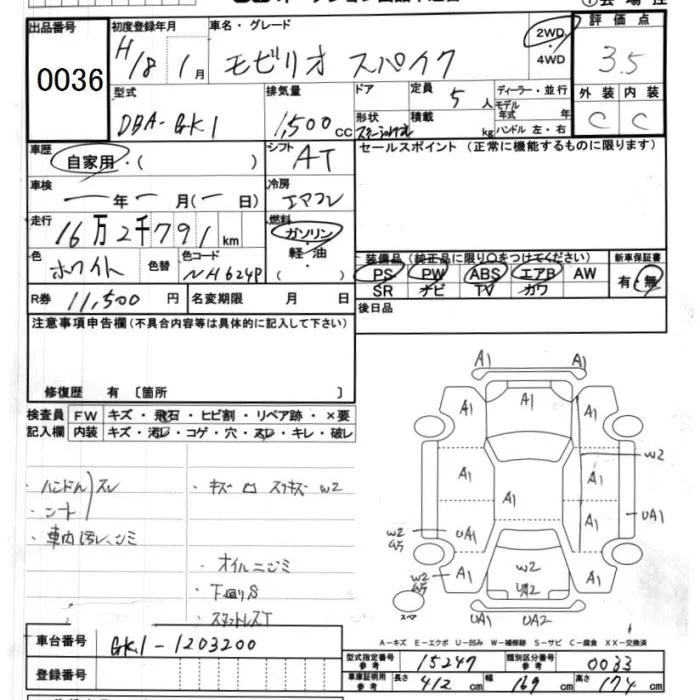 出品番号
0036
初度登録年月
H18 1月
車名・グレード
モビリオ スパイク
2WD
4WD
評価点
3.5
外装 内装
C C
型式
DBA-GK1
排気量
1,500cc
ドア
形状
定員 5人
積載 kg
ディーラー・並行
モデル年式 年
ハンドル 左・右
車歴
自家用・( )
シフト
AT
セールスポイント (正常に機能するものに限ります)
車検
年 月( 日)
冷房
エアコン
走行
16万2千791km
燃料
ガソリン・軽油
色
ホワイト
色替
色コード
NH624P
装備品 (純正品に限り○をつけてください)
PS PW ABS エアB AW
SR ナビ TV カワ
新車保証書
有・無
R券 11,500円
名変期限 月 日
後日品
注意事項申告欄 (不具合内容等は具体的に記入して下さい)
修復歴 有 〔箇所 〕
検査員記入欄
FW キズ・飛石・ヒビ割・リペア跡・×要
内装 キズ・汚レ・コゲ・穴・スレ・キレ・破レ
・ハンドルスレ
・シート
・車内汚レ、シミ
・キズ
W2
・オイルニジミ
・下廻りS
A1 A1
A1 A1 A1
W2
A1 A1 A1
UA1
W2
UA1 A1
W2
A1 W2 A1
UA2
スペア
UA1 UA2
A-キズ E-エクボ U-凹み W-補修跡 S-サビ C-腐食 XX-交換済
車台番号
GK1-1203200
登録番号
型式指定番号 参考
15247
類別区分番号 参考
0033
車庫証明用 参考
長さ 412cm 幅 169cm 高さ 174cm